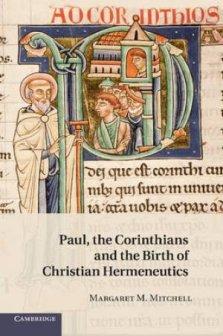 AD CORINTHIOS
dei que est corinthi cum
qui sunt in
uobis
Paul, the Corinthians
and the Birth of
Christian Hermeneutics
MARGARET M. MITCHELL
CAMBRIDGE